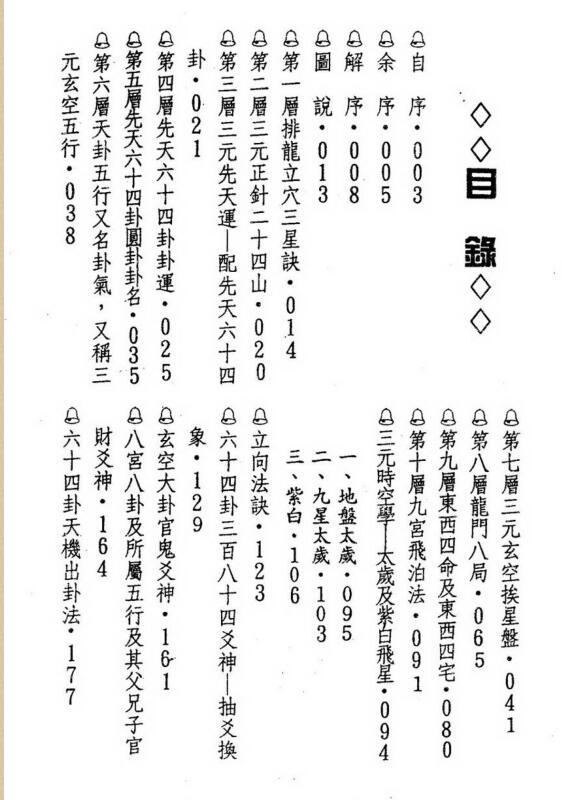 ◇◇目錄◇◇
自序·003
余序·005
解序·008
圖說·013
第一層排龍立穴三星訣·014
第二層三元正針二十四山·020
第三層三元先天運—配先天六十四
卦·021
第四層先天六十四卦卦運·025
第五層先天六十四卦圓卦卦名·035
第六層天卦五行又名卦氣，又稱三
元玄空五行·038
第七層三元玄空挨星盤·041
第八層龍門八局·065
第九層東西四命及東西四宅·080
第十層九宮飛泊法·091
三元時空學—太歲及紫白飛星·094
一、地盤太歲·095
二、九星太歲·103
三、紫白·106
立向法訣·123
六十四卦三百八十四爻神—抽爻換
象·129
玄空大卦官鬼爻神·161
八宮八卦及所屬五行及其父兄子官
財爻神·164
六十四卦天機出卦法·177